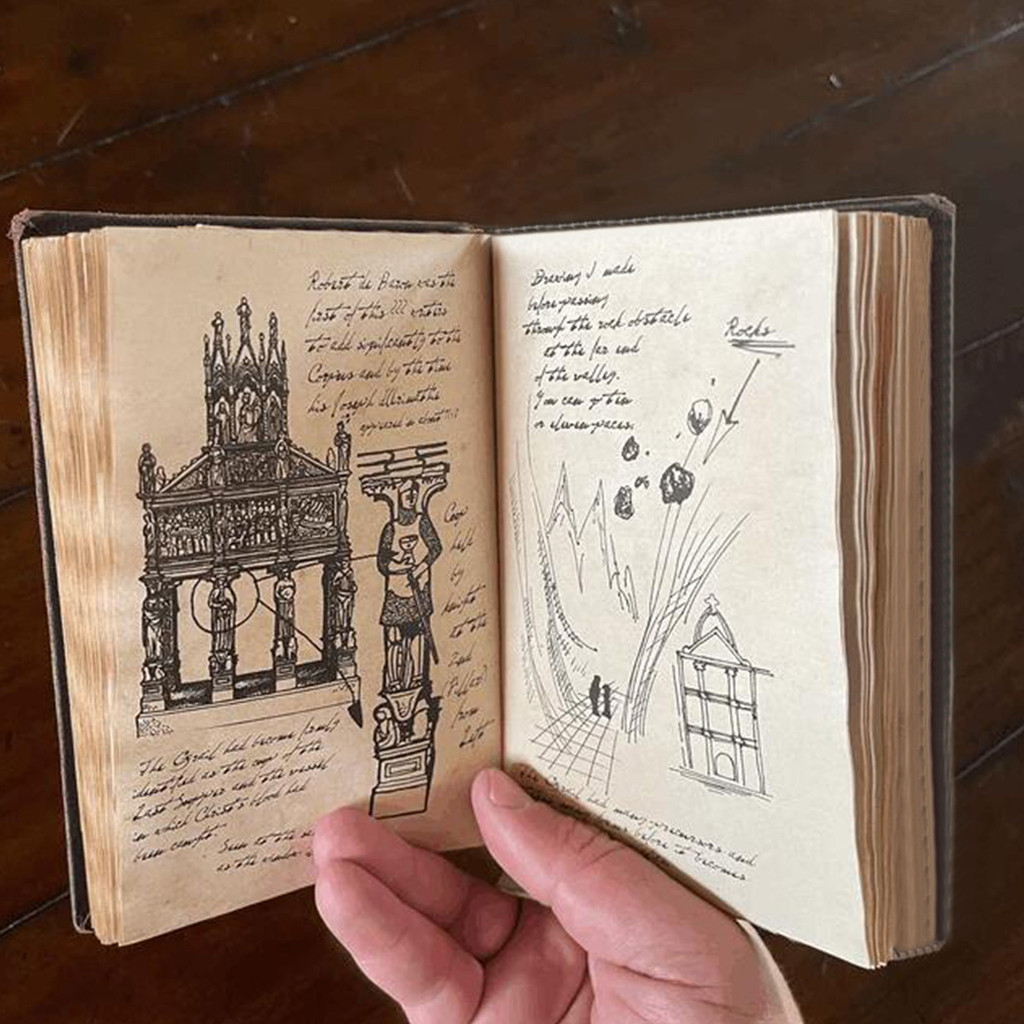 Robert de Boron was the
first of this writers
to add significantly to the
Corpus and by the time
his Joseph
appeared in about
Cup
held
by
knight
at the
2nd
(Pillar)
from
Left
The Grail had become firmly
identified as the cup of the
Last Supper and the vessel
in which Christ's blood had
been caught.
Seen at the
as the
Drawing I made
before passing
through the rock obstacle
at the far end
of the valley.
You can go ten
or eleven paces.
Rocks
or
had many precursors and
before it becomes